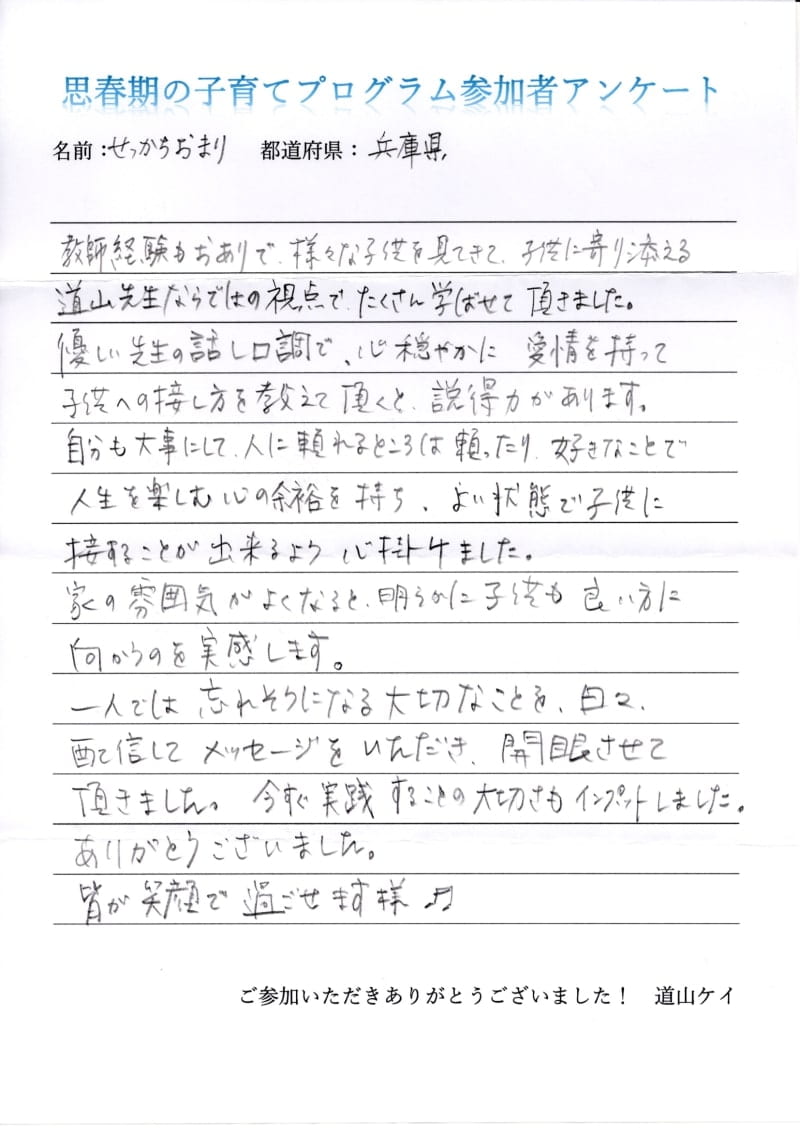 思春期の子育てプログラム参加者アンケート
名前：せっかちおまり 都道府県：兵庫県
教師経験もおありで、様々な子供を見てきて、子供に寄り添える
道山先生ならではの視点で、たくさん学ばせて頂きました。
優しい先生の話し口調で、心穏やかに 愛情を持って
子供への接し方を教えて頂くと、説得力があります。
自分も大事にして、人に頼れるところは頼ったり、好きなことで
人生を楽しむ心の余裕を持ち、よい状態で子供に
接することが出来るよう心掛けました。
家の雰囲気がよくなると、明らかに子供も良い方に
向かうのを実感します。
一人では忘れそうになる大切なことを、日々、
配信して メッセージをいただき、開眼させて
頂きました。今すぐ実践することの大切さもインプットしました。
ありがとうございました。
皆が笑顔で過ごせます様♬
ご参加いただきありがとうございました！ 道山ケイ